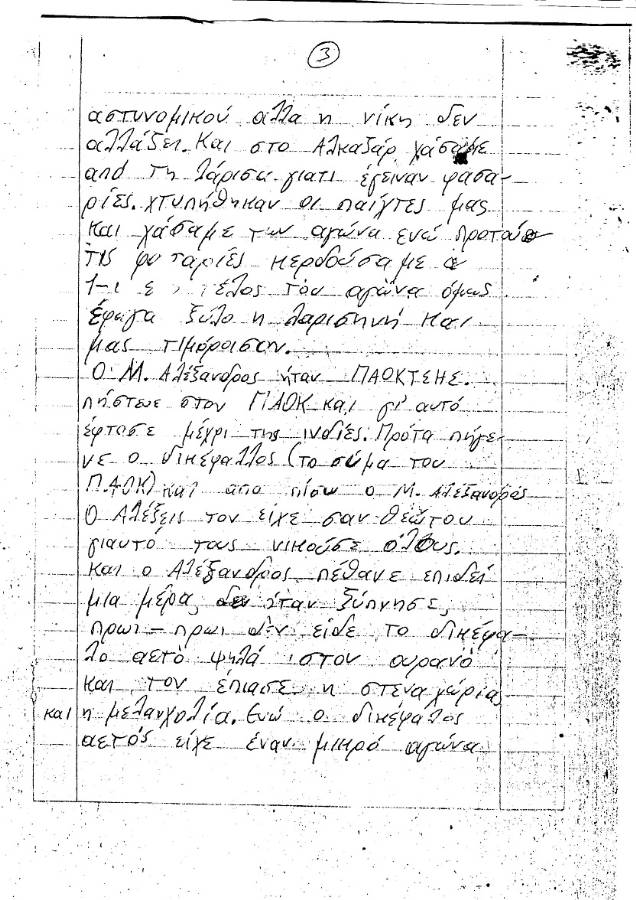 3
αστυνομικού αλλα η νίκη δεν
αλλάζει. Και στο Αλκαζάρ χάσαμε
από τη Λάρισα γιατι έγειναν φασα-
ρίες. χτυπήθηκαν οι παίχτες μας
και χάσαμε τον αγώνα ενώ προτού
τις φασαρίες κερδούσαμε
1-1 τέλος του αγώνα όμως
έφαγα ξύλο η λαρισηνή και
μας τιμόρισαν.
Ο Μ. Αλέξανδρος ήταν ΠΑΟΚΤΣΗΣ.
πήστευε στον ΠΑΟΚ και γι' αυτό
έφτασε μέχρι της ινδίες. Πρότα πήγε-
νε ο δικέφαλλος (το σύμα του
ΠΑΟΚ) και απο πίσω ο Μ. Αλέξανδρος
Ο Αλέξεις τον είχε σαν θεώ του
γιαυτό τους νικούσε όλους.
Και ο Αλέξανδρος πέθανε επιδεί
μια μέρα δεν ήταν ξύπνησε
πρωι-πρωι δεν είδε το δικέφα-
λο αετό ψηλά στον ουρανό
και τον έπιασε η στεναχώρια
και η μελανχολία. Ενώ ο δικέφαλος
αετός είχε έναν μικρό αγώνα